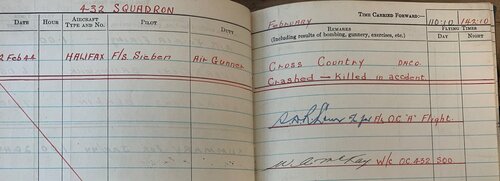 432 SQUADRON
DATE
HOUR
AIRCRAFT
TYPE AND NO.
PILOT
DUTY
2 Feb 44 HALIFAX F/s Sieben Air Gunner
February TIME CARRIED FORWARD:— 110:10 142:10
REMARKS
(Including results of bombing, gunnery, exercises, etc.)
FLYING TIMES
DAY NIGHT
Cross Country DNCO.
Crashed — Killed in accident.
F/s OC "A" Flight.
W. A. McKay W/c OC 432 SQD.